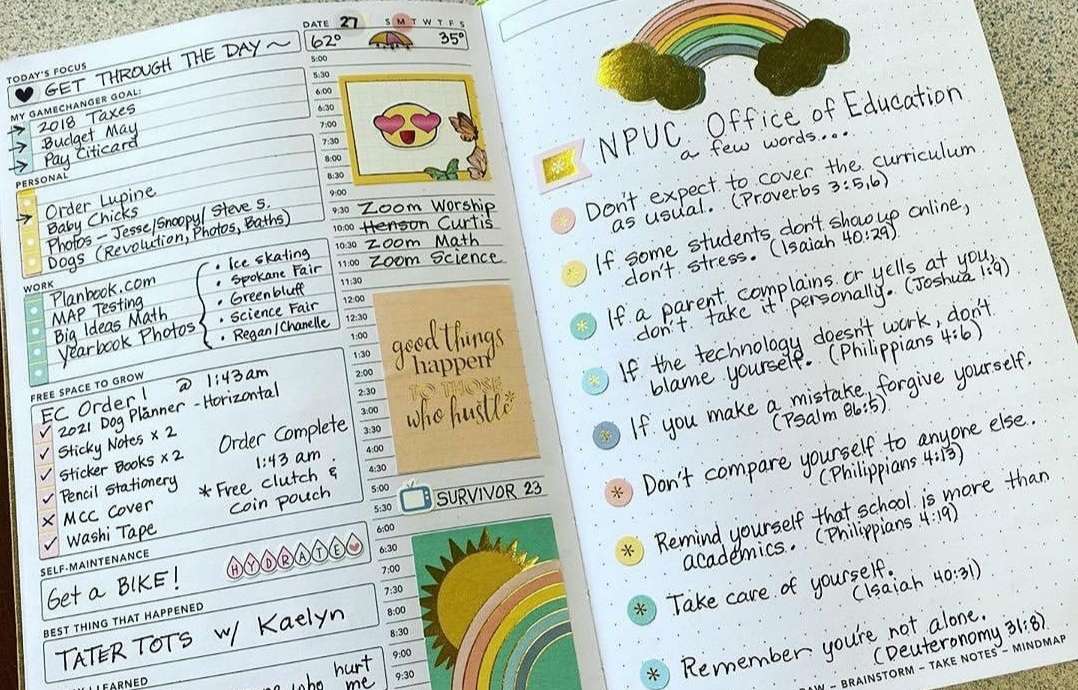 DATE 27 S M T W T F S
62° 35°
TODAY'S FOCUS
GET THROUGH THE DAY ~
MY GAMECHANGER GOAL:
→ 2018 Taxes
→ Budget May
→ Pay Citicard
PERSONAL
Order Lupine
→ Baby Chicks
Photos - Jesse/Snoopy/Steve S.
Dogs (Revolution, Photos, Baths)
WORK
Planbook.com
MAP Testing
Big Ideas Math
Yearbook Photos
• Ice Skating
• Spokane Fair
• Greenbluff
• Science Fair
• Regan/Chanelle
FREE SPACE TO GROW
EC Order! @ 1:43am
✓ 2021 Dog Planner - Horizontal
✓ Sticky Notes x 2
✓ Sticker Books x 2
✓ Pencil Stationery
x MCC Cover
✓ Washi Tape
Order Complete
1:43 am
* Free clutch &
coin pouch
SELF-MAINTENANCE
HYDRATE
Get a BIKE!
BEST THING THAT HAPPENED
TATER TOTS w/ Kaelyn
LEARNED
who hurt
me
5:00
5:30
6:00
6:30
7:00
7:30
8:00
8:30
9:00
9:30 Zoom Worship
10:00 Henson Curtis
10:30 Zoom Math
11:00 Zoom Science
11:30
12:00
12:30
1:00
1:30
2:00
2:30
3:00
3:30
4:00
4:30
5:00
5:30
6:00
6:30
7:00
7:30
8:00
8:30
9:00
9:30
good things
happen
TO THOSE
who hustle*
SURVIVOR 23
NPUC Office of Education
a few words...
Don't expect to cover the curriculum
as usual. (Proverbs 3:5,6)
If some students don't show up online,
don't stress. (Isaiah 40:29)
If a parent complains or yells at you,
don't take it personally. (Joshua 1:9)
If the technology doesn't work, don't
blame yourself. (Philippians 4:6)
If you make a mistake, forgive yourself.
(Psalm 86:5)
Don't compare yourself to anyone else..
(Philippians 4:13)
Remind yourself that school is more than
academics. (Philippians 4:19)
Take care of yourself.
(Isaiah 40:31)
Remember you're not alone.
(Deuteronomy 31:8)
- BRAINSTORM - TAKE NOTES - MINDMAP